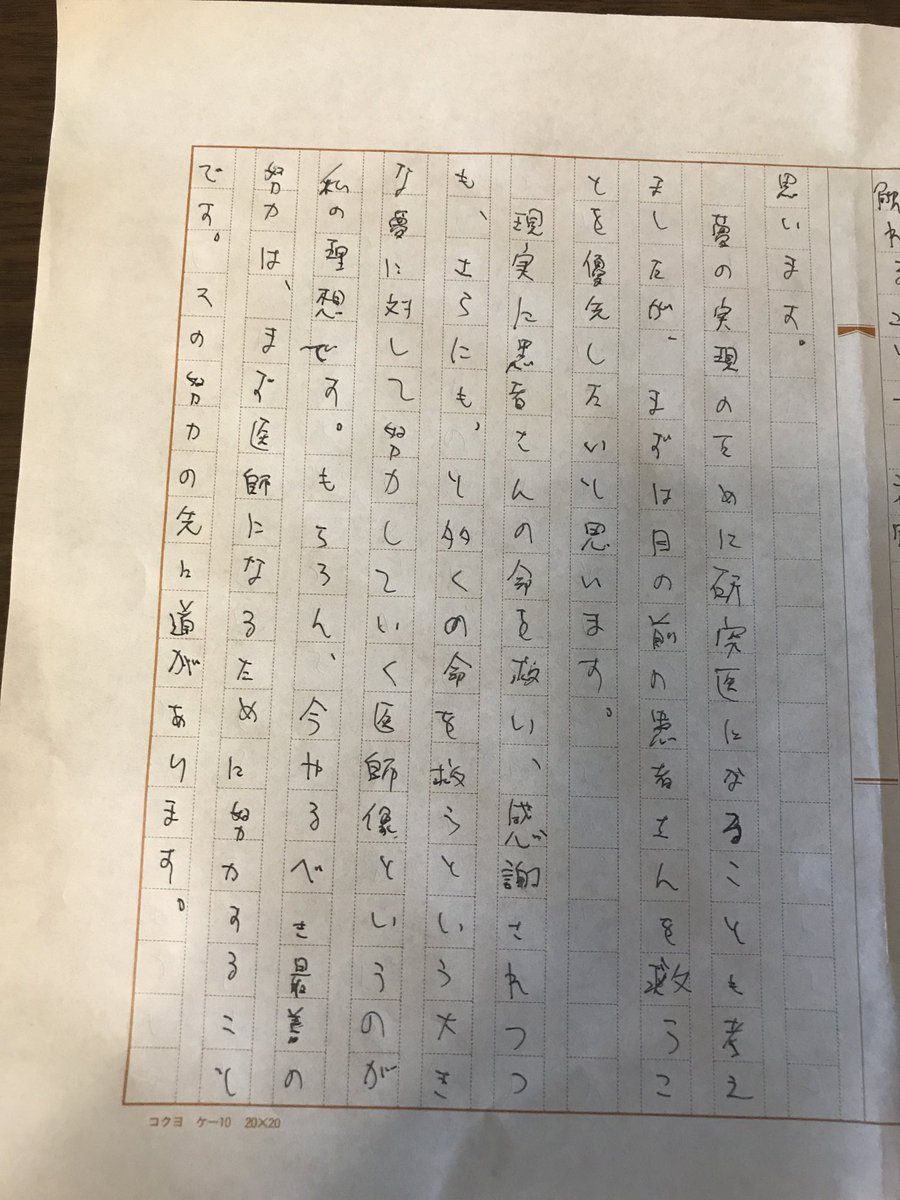 思います。
夢の実現のために研究医になることも考え
ましたが、まずは目の前の患者さんを救うこ
とを優先したいと思います。
現実に患者さんの命を救い、感謝されつつ
も、さらにも、と多くの命を救うという大き
な夢に対して努力していく医師像というのが
私の理想です。もちろん、今やるべき最善の
努力は、まず医師になるために努力すること
です。その努力の先に道があります。
コクヨ ケー10 20×20